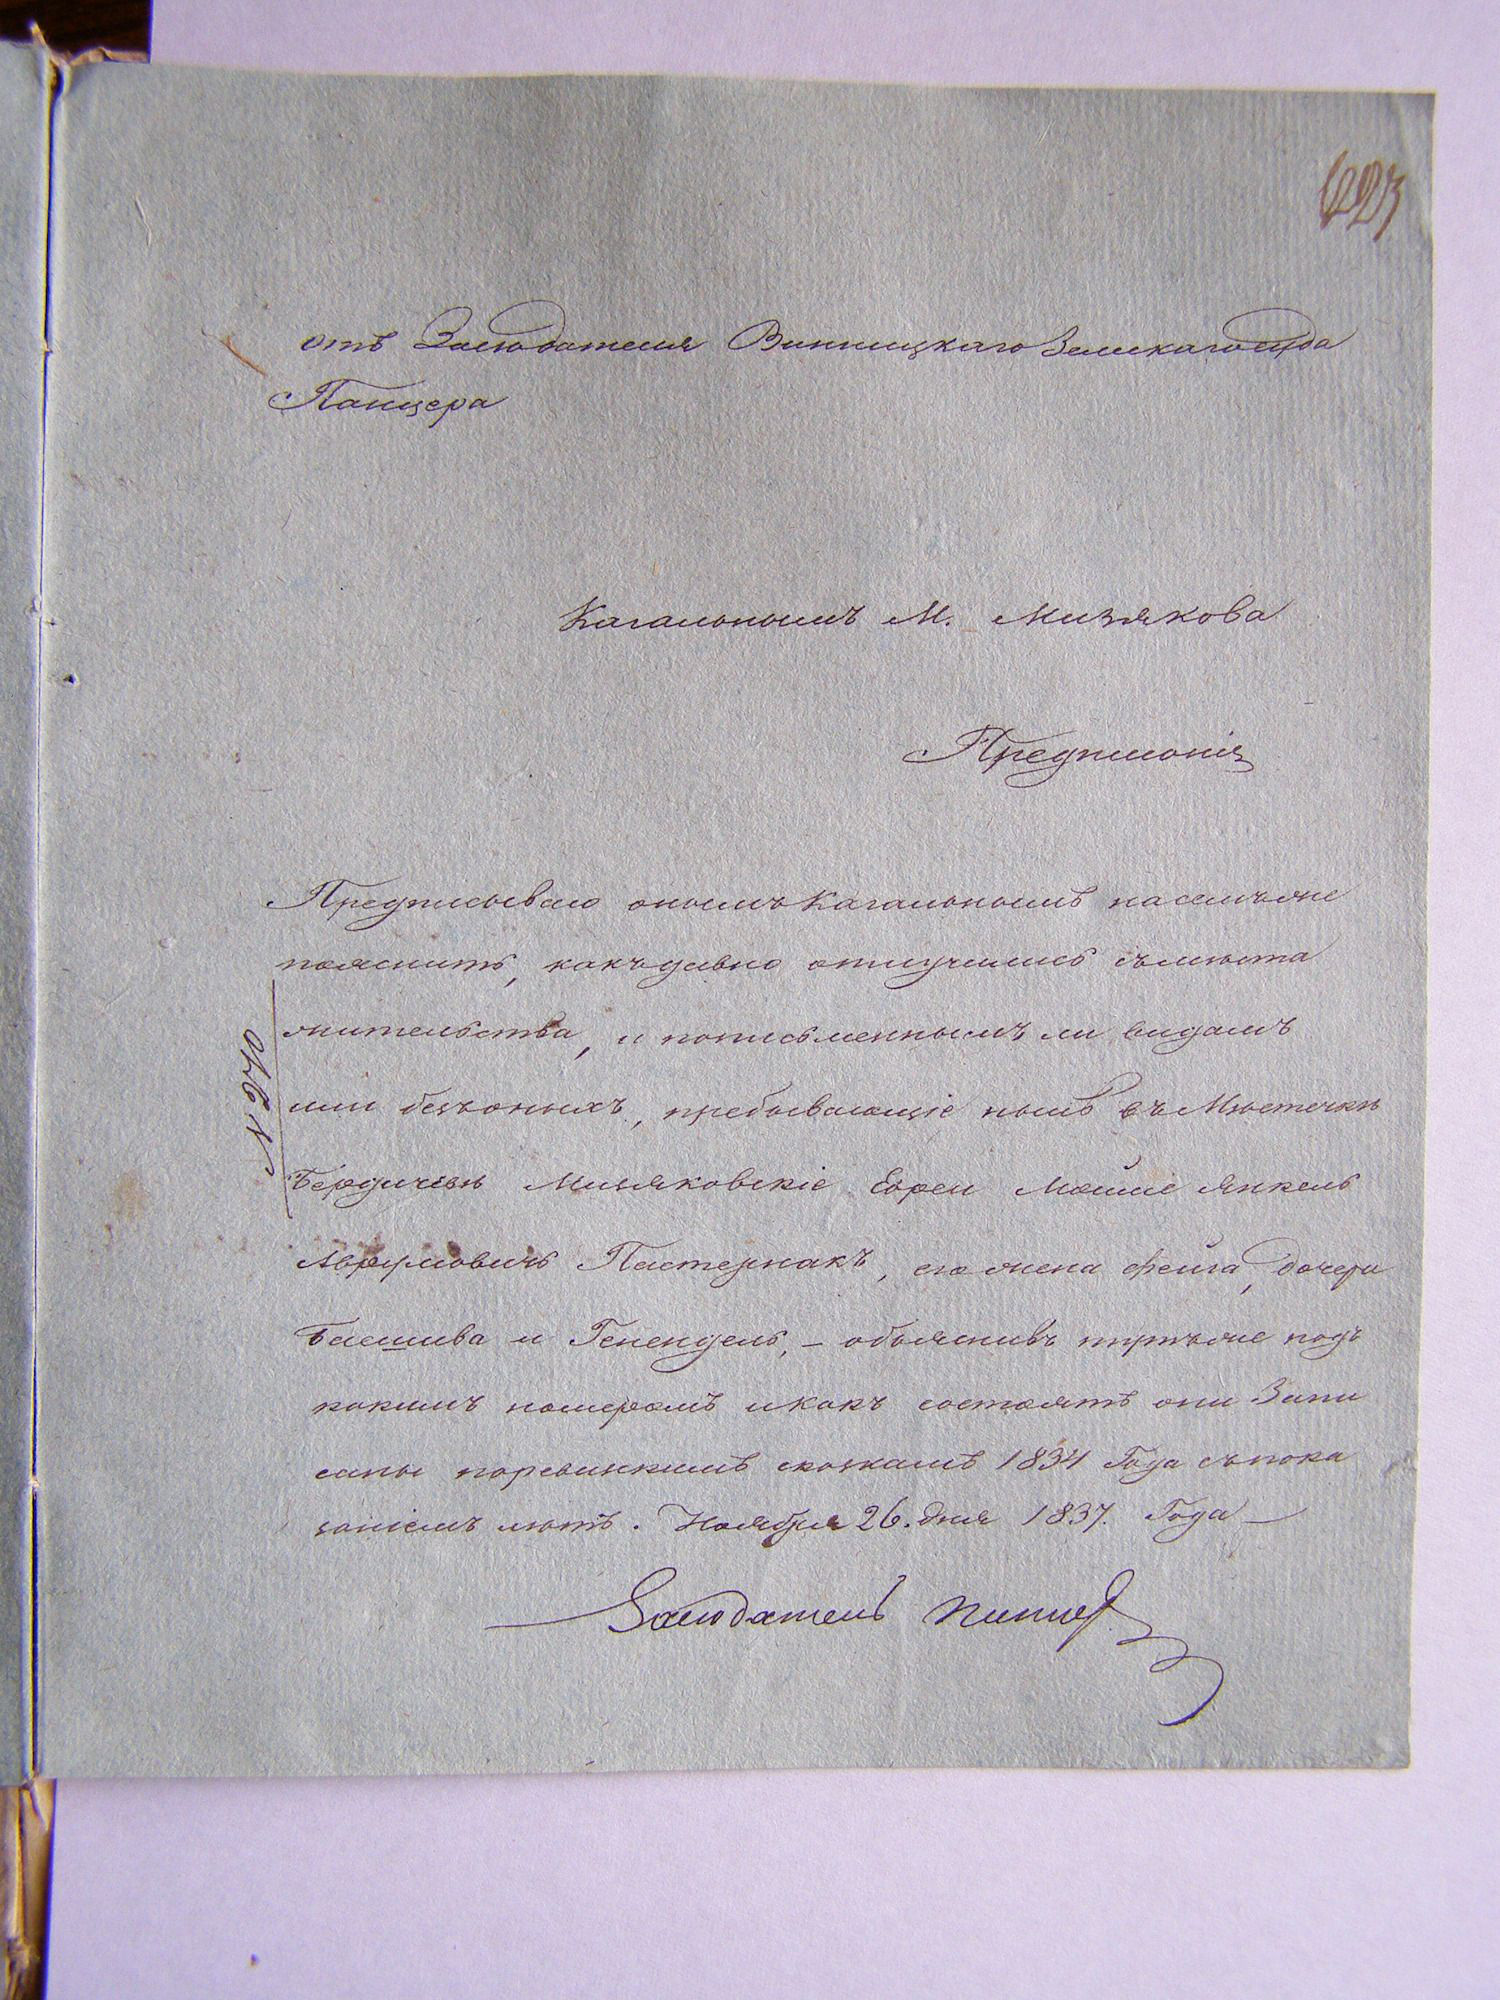 отъ Заседателя Винницкаго Земскаго суда
Панцера
Кагальнымъ М. Мизякова
Предписанія
Предписываю онымъ Кагальнымъ насемъ же
пояснить, какъ давно отлучились съ мѣста
жительства, и пописьменнымъ ли видамъ
или безъ оныхъ, пребывающіе нынѣ въ Мѣстечкѣ
Бердичевѣ Мизяковскіе Евреи Мошие Янкель
Аврумовичь Пастернакъ, его жена Фейга, дочери
Басшива и Генендель, – объяснивъ при томъ же подъ
какимъ номеромъ и какъ состоятъ они Запи
саны поревизкимъ сказкамъ 1834 Года съ пока
заніемъ лѣтъ. Ноября 26. дня 1837. Года —
Заседатель
N 270